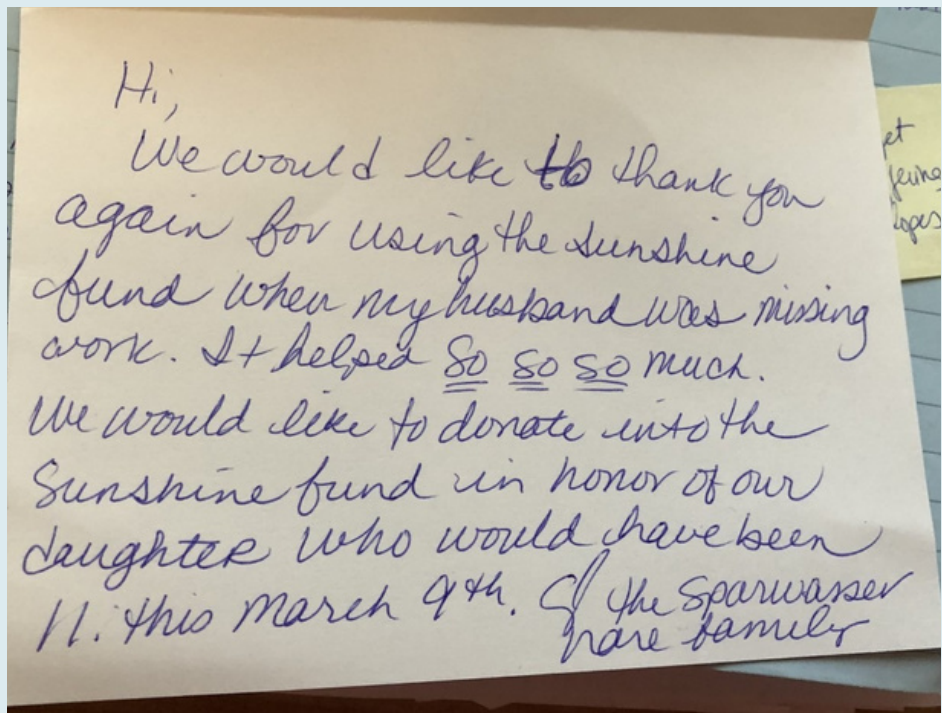 Hi,
We would like to thank you
again for using the Sunshine
fund when my husband was missing
work. It helped so so so much.
We would like to donate into the
Sunshine fund in honor of our
daughter who would have been
11. this March 9th.
the Sparwasser
hare family
et